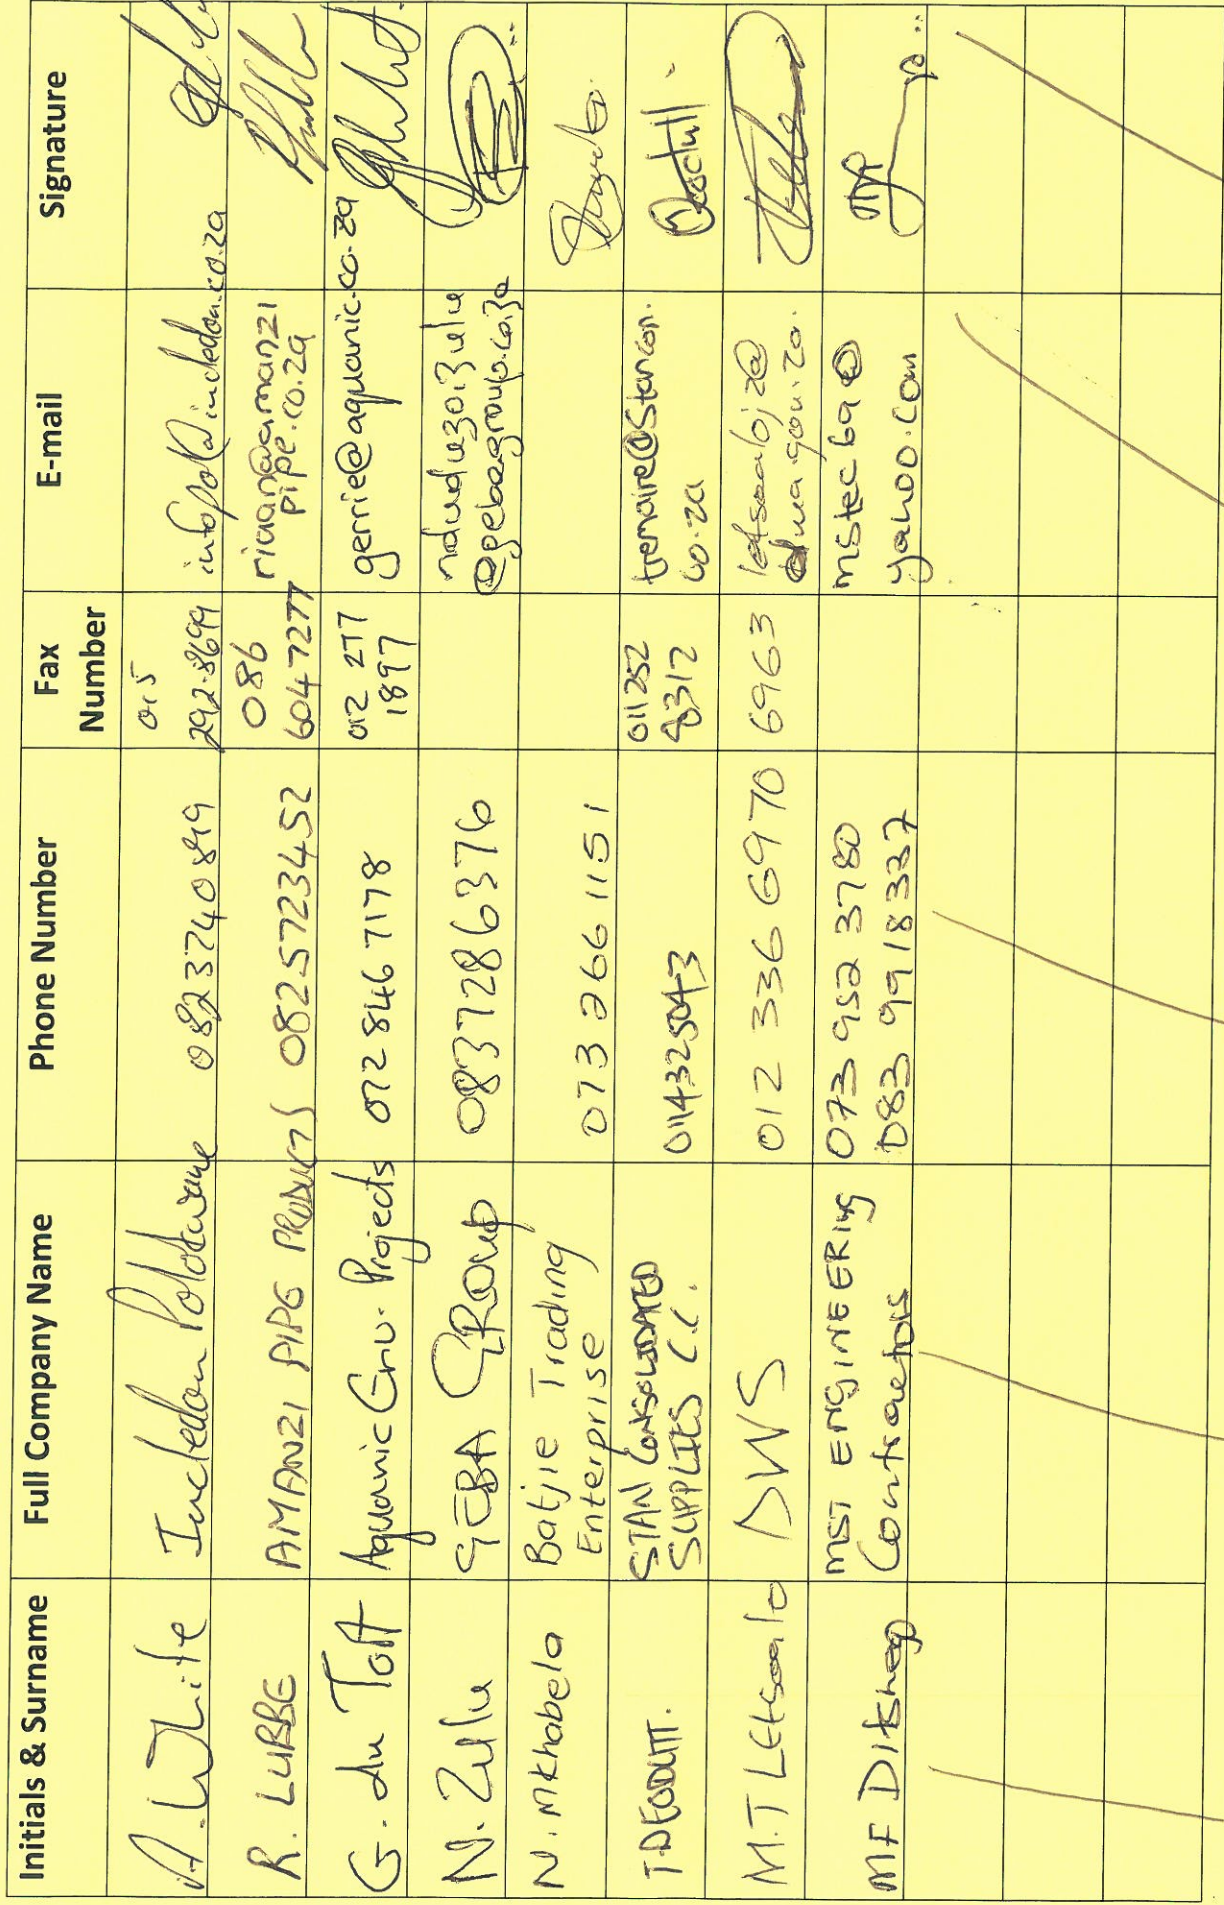 Initials & Surname Full Company Name Phone Number Fax Number E-mail Signature
A. White Incledon Polokwane 0823740849 015 292-8699 infopol@incledon.co.za
R. LUBBE AMANZI PIPE PRODUCTS 0825723452 086 6047277 riaan@amanzi pipe.co.za
G. du Toit Aquanic Env. Projects 072 846 7178 012 277 1897 gerrie@aquanic.co.za
N. Zulu GEBA GROUP 0837286376 @gebagroup.co.za
N. Mkhabela Batjie Trading Enterprise 073 266 1151
T. DEODUTT. STAN CONSOLIDATED SUPPLIES C.C. 0114325043 011 252 8312 tremaire@stancon. co.za
M.T Letsoalo DWS 012 336 6970 6963 @dwa.gov.za.
MF Dikhag MST ENGINEERING Contractors 073 952 3780 083 9918337 mstecba@ yahoo.com